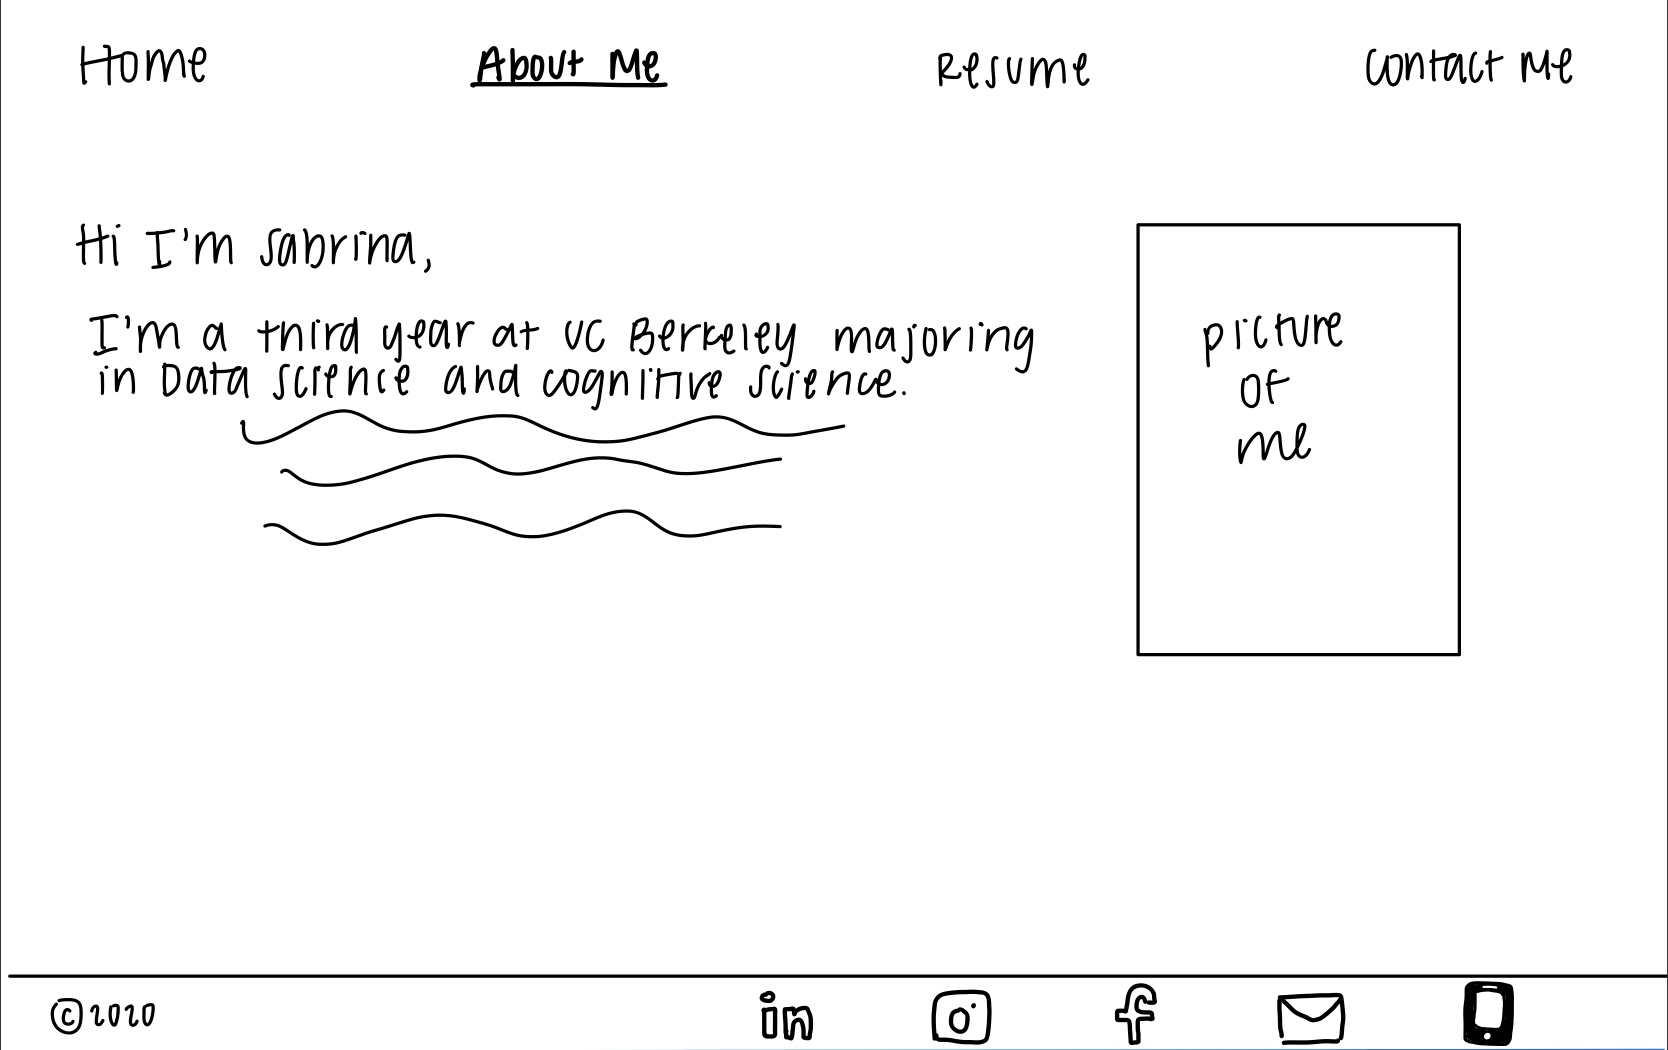 Home About Me Resume Contact Me
Hi I'm Sabrina,
I'm a third year at UC Berkeley majoring
in Data Science and cognitive science.
picture
of
me
©2020 in f